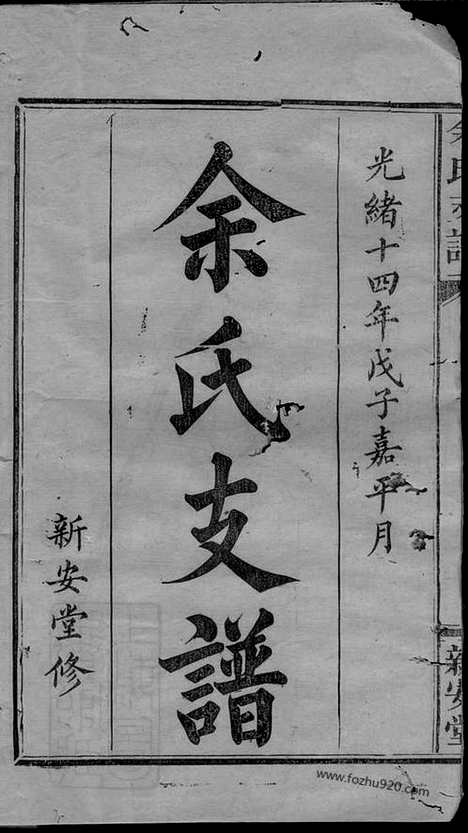 光緒十四年戊子嘉平月
余氏支譜
新安堂修
余氏支譜
新安堂
www.fozhu920.com